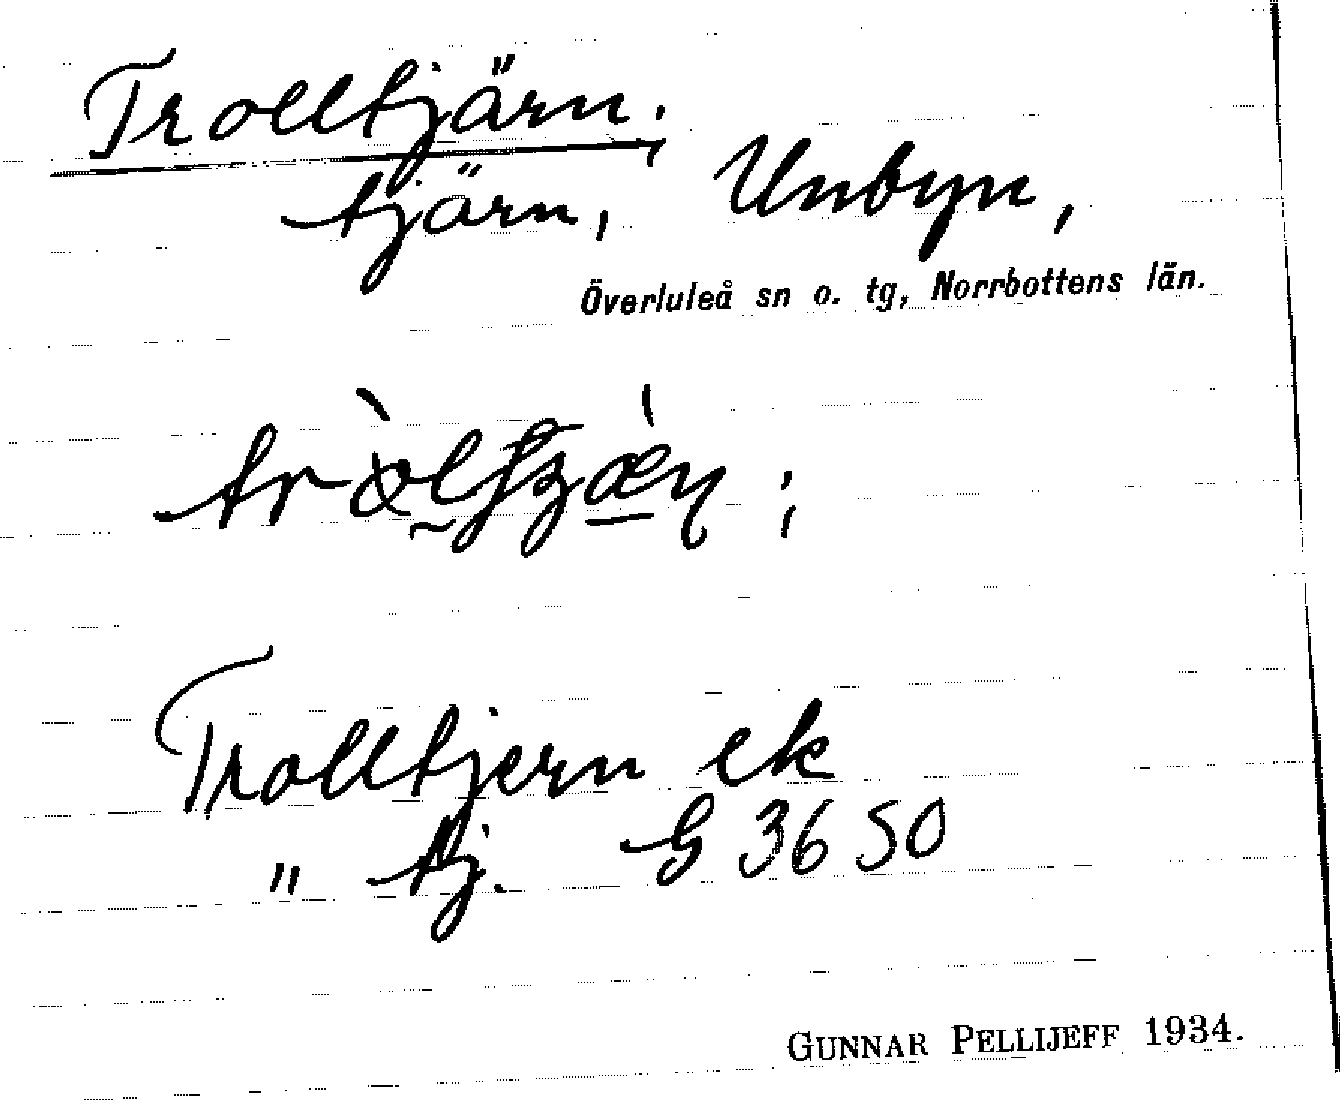 Trolltjärn;
tjärn, Unbyn,
Överluleå sn o. tg, Norrbottens län.
Trolltjern ek
" tj. G 3650
GUNNAR PELLIJEFF 1934.